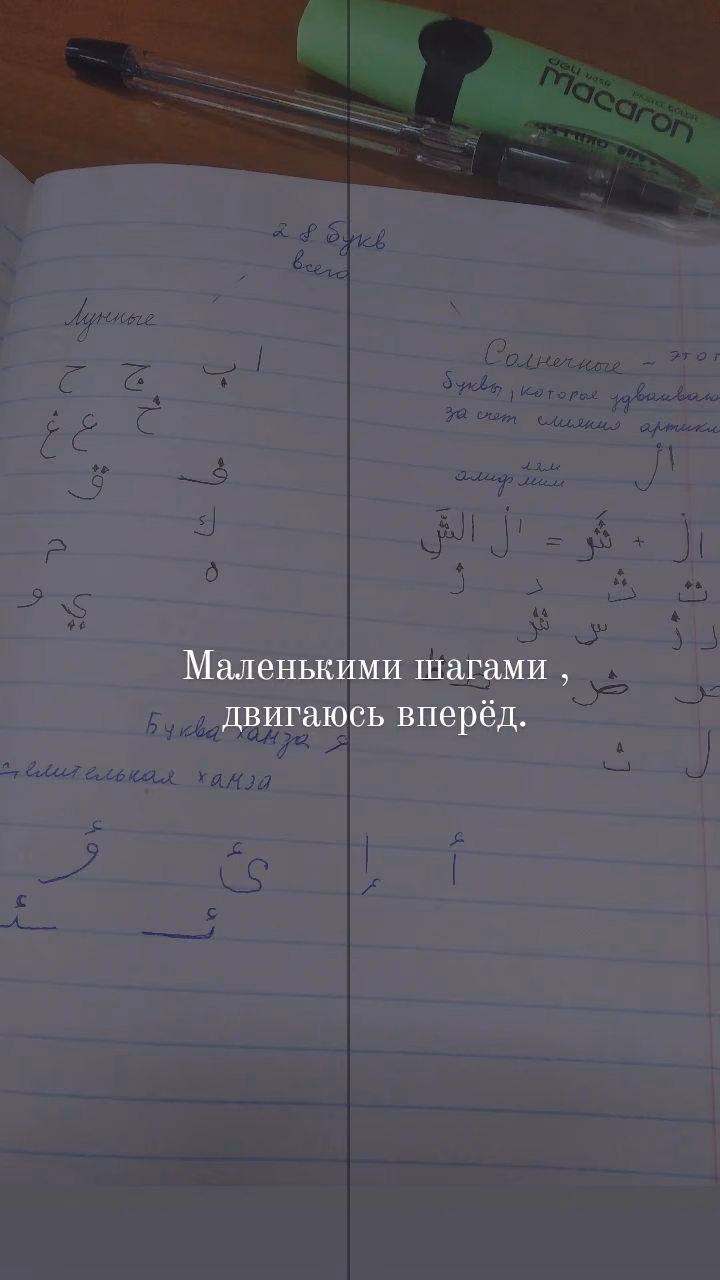 deli
macaron
28 букв
всего
Лунные
ا ب ج ح
خ ع غ
ف ق
ك
م ه
و ي
Солнечные - это
буквы, которые удваиваю
за счет слияния артикл
ال
алиф лям
мим
ال + شَ = ال الشَّ
ت ث د ذ
ر ز س ش
ض
ل ن
Маленькими шагами ,
двигаюсь вперёд.
Буква хамза ء
делительная хамза
أ إ ئ ؤ